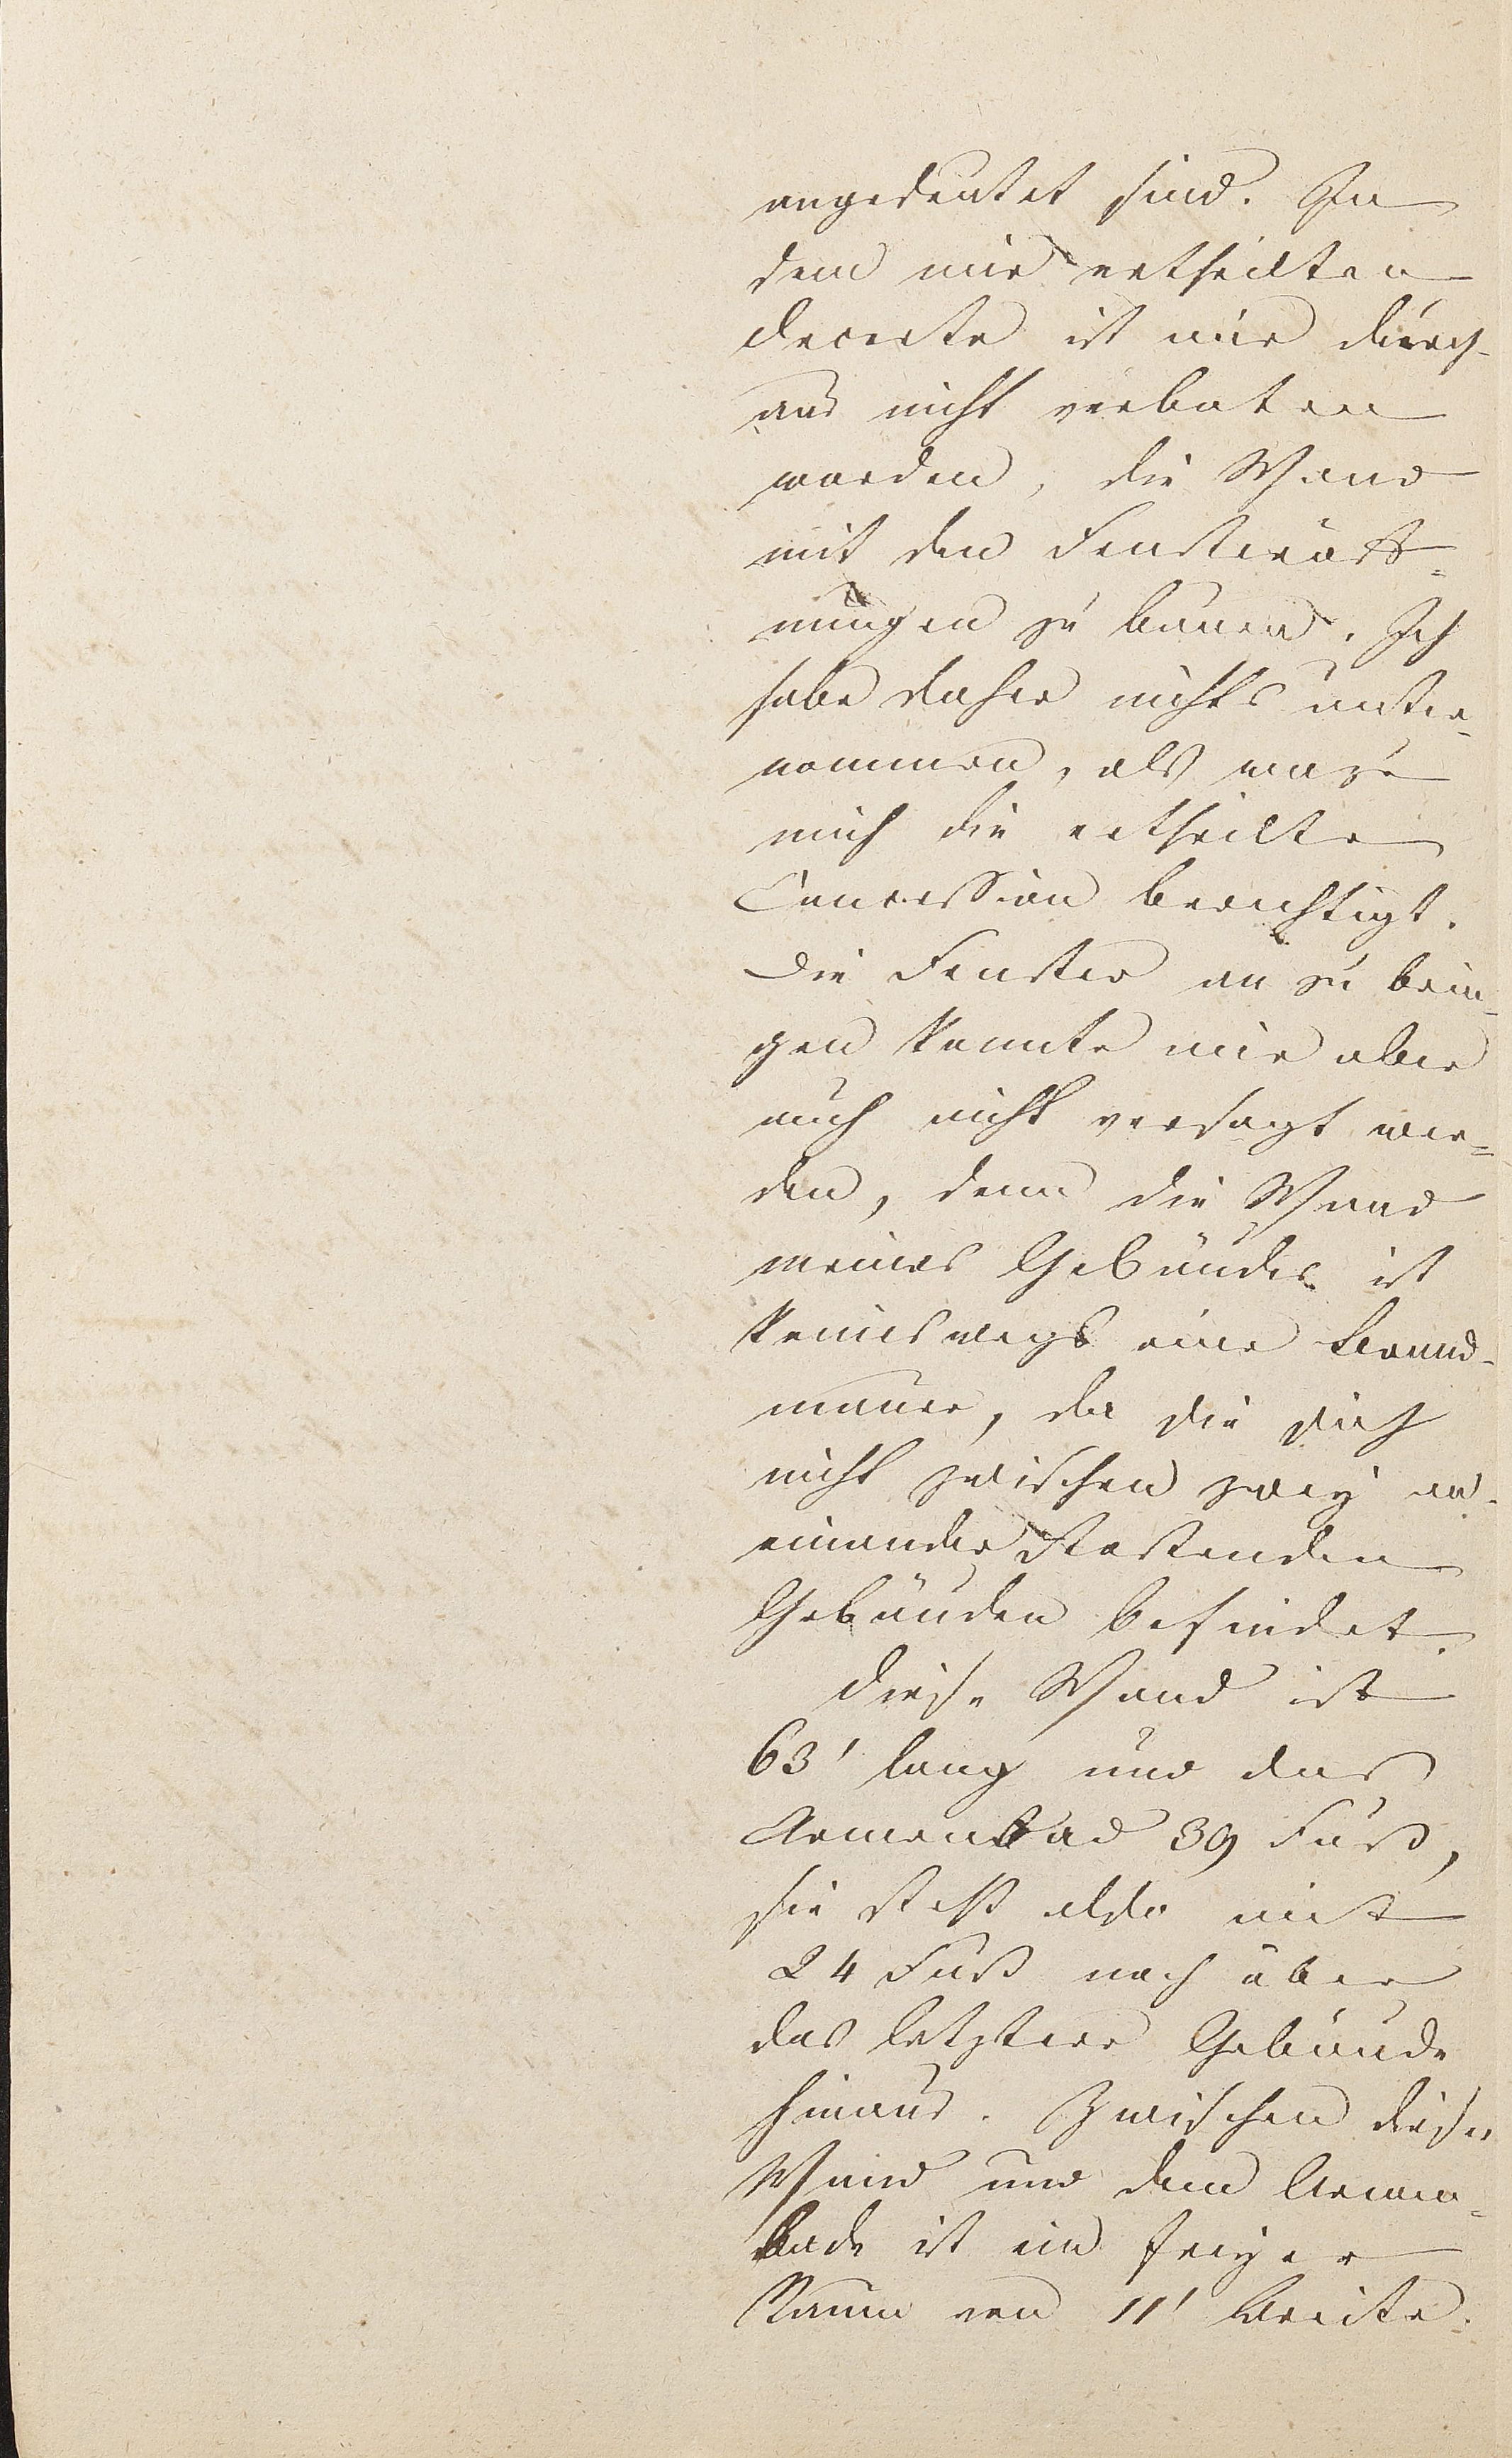 angedeutet sind. In
dem mir ertheilten
Decrete ist mir durch-
aus nicht verboten
worden, die Wand
mit den Fensteröff=
nungen zu bauen. Ich
habe daher nichts unter=
nommen, als wozu
mich die ertheilte
Concession berechtigt.
Die Fenster an zu brin=
gen konnte mir aber
auch nicht versagt wer=
den, denn die Wand
meines Gebäudes ist
keineswegs eine Brand-
mauer, da sie sich
nicht zwischen zwey an-
einander stoßenden
Gebäuden befindet.
Diese Wand ist
63' lang und das
Armenbad 39 Fuß,
sie steht also mit
24 Fuß noch über
das letztere Gebäude
hinaus. Zwischen dieser
Wand und dem Armen=
bade ist ein freyer
Raum von 11' Breite.